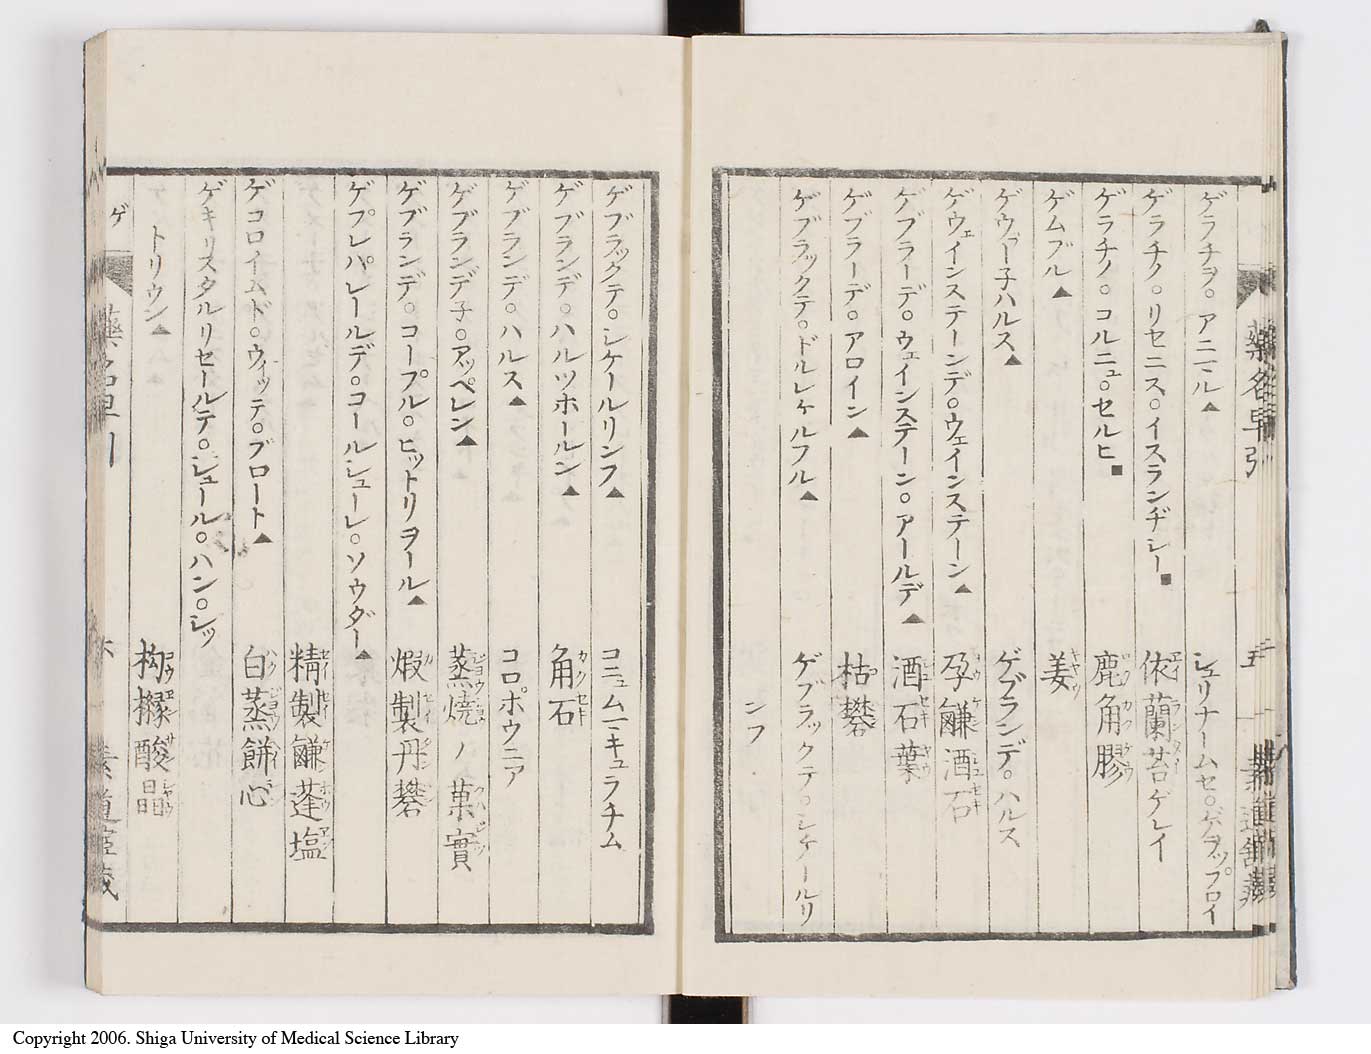 ゲラチヲ。アニール▲ シュリナームセ。ゲヲップロイ
ゲラチノ。リセニス。イスランヂシー■ 依蘭苔ゲレイ
ゲラチノ。コルニュ。セルヒ■ 鹿角膠
ゲムブル▲ 姜
ゲウァー子ハルス▲ ゲブランデ。ハルス
ゲウェインステーンデ。ウェインステーン▲ 孕鹻酒石
ゲブラーデ。ウェインステーン。アールデ▲ 酒石葉
ゲブラーデ。アロイン▲ 枯礬
ゲブラックテ。ドルレケルフル▲ ゲブラックテ。シケールリ
ンフ
ゲブラックテ。シケールリンフ▲ コニュムーキュラチム
ゲブランデ。ハルツホールン▲ 角石
ゲブランデ。ハルス▲ コロポウニア
ゲブランデ子。アッペレン▲ 蒸焼ノ菓實
ゲブランデ。コープル。ヒットリヲール▲ 煆製丹礬
ゲプレパレールデ。コールシューレ。ソウダー▲
精製鹻蓬塩
ゲコロイムド。ウィッテ。ブロート▲ 白蒸餅心
ゲキリスタルリセールテ。シュール。ハン。シッ
トリウン▲ 枸櫞酸晶
ゲ
藥名早引
Copyright 2006. Shiga University of Medical Science Library